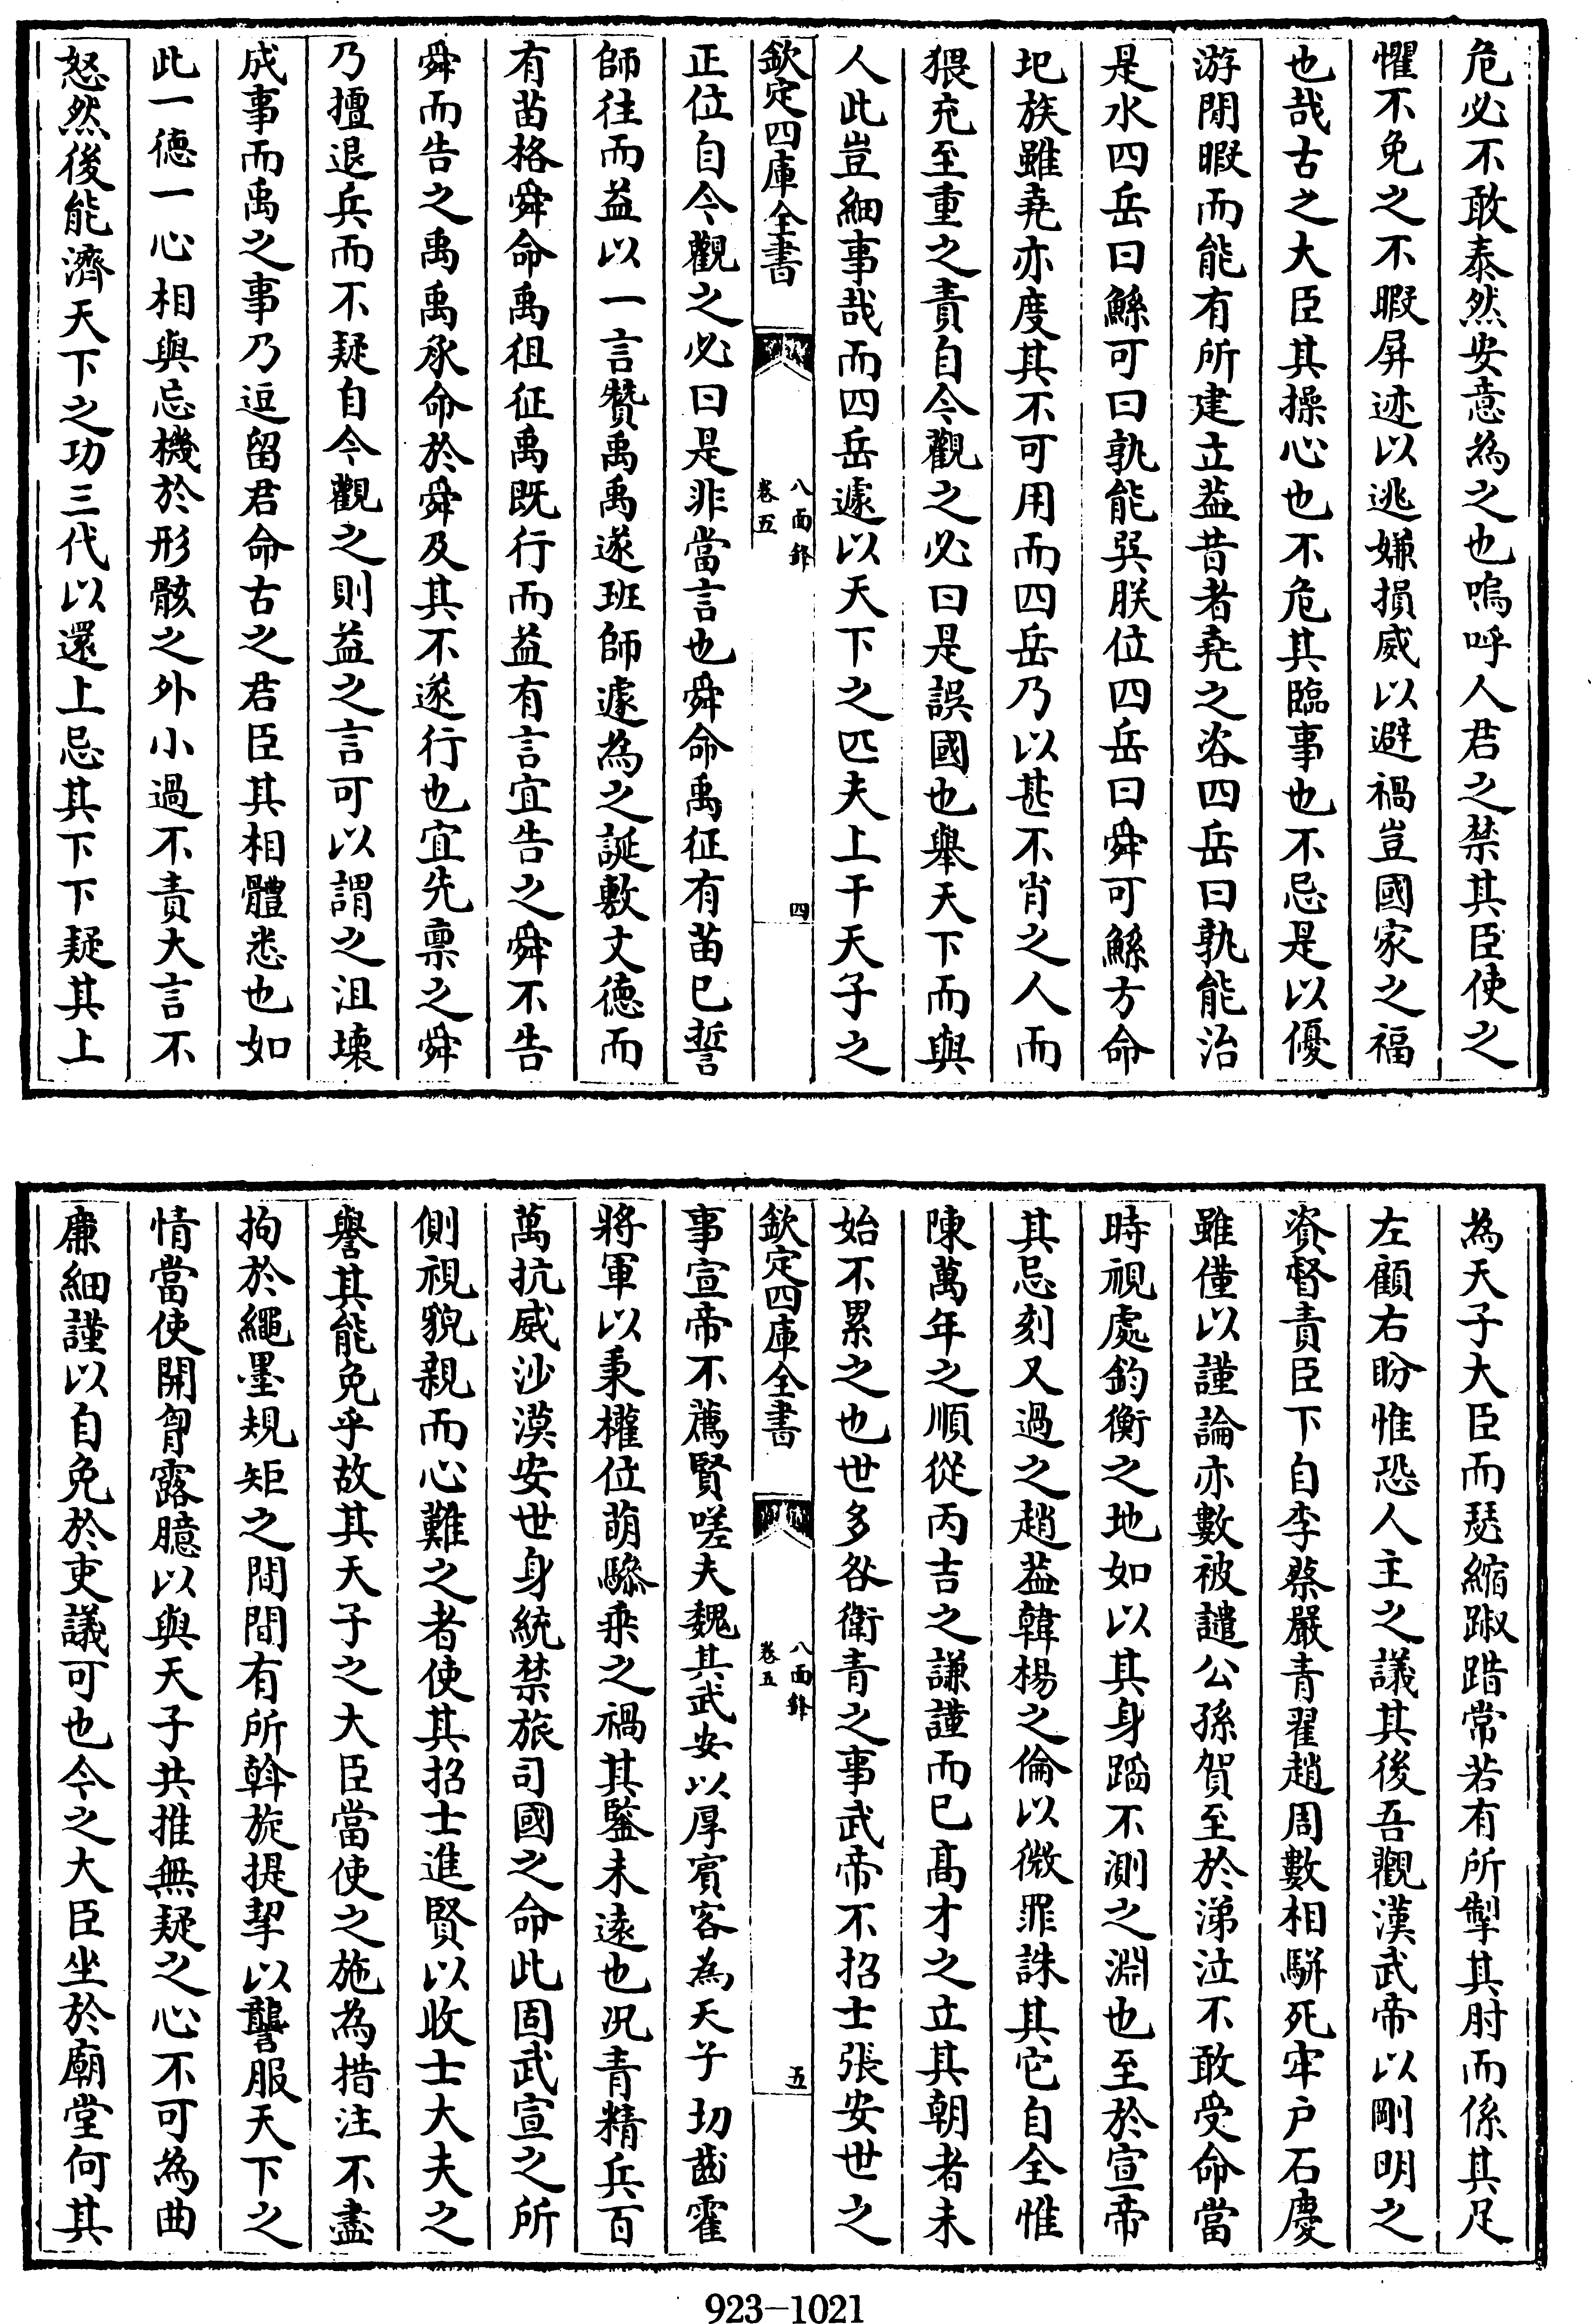 危必不敢泰然安意為之也嗚呼人君之禁其臣使之
懼不免之不暇屏迹以逃嫌損威以避禍豈國家之福
也哉古之大臣其操心也不危其臨事也不忌是以優
游閒暇而能有所建立葢昔者堯之咨四岳曰孰能治
是水四岳曰鯀可曰孰能巽朕位四岳曰舜可鯀方命
圯族雖堯亦度其不可用而四岳乃以甚不肖之人而
猥充至重之責自今觀之必曰是誤國也舉天下而與
人此豈細事哉而四岳遽以天下之匹夫上干天子之
欽定四庫全書
八面鋒
卷五
四
正位自今觀之必曰是非當言也舜命禹征有苗已誓
師往而益以一言贊禹禹遂班師遽為之誕敷文德而
有苗格舜命禹徂征禹既行而益有言宜告之舜不告
舜而告之禹禹承命於舜及其不遂行也宜先稟之舜
乃擅退兵而不疑自今觀之則益之言可以謂之沮壞
成事而禹之事乃逗留君命古之君臣其相體悉也如
此一德一心相與忘機於形骸之外小過不責大言不
怒然後能濟天下之功三代以還上忌其下下疑其上
為天子大臣而瑟縮踧踖常若有所掣其肘而係其足
左顧右盼惟恐人主之議其後吾觀漢武帝以剛明之
資督責臣下自李蔡嚴青翟趙周數相駢死牢戶石慶
雖僅以謹論亦數被譴公孫賀至於涕泣不敢受命當
時視處鈞衡之地如以其身蹈不測之淵也至於宣帝
其忌刻又過之趙葢韓楊之倫以微罪誅其它自全惟
陳萬年之順從丙吉之謙謹而已髙才之立其朝者未
始不累之也世多咎衛青之事武帝不招士張安世之
欽定四庫全書
八面鋒
卷五
五
事宣帝不薦賢嗟夫魏其武安以厚賓客為天子切齒霍
將軍以秉權位萌驂乘之禍其鑒未遠也况青精兵百
萬抗威沙漠安世身統禁旅司國之命此固武宣之所
側視貌親而心難之者使其招士進賢以收士大夫之
譽其能免乎故其天子之大臣當使之施為措注不盡
拘於繩墨規矩之間間有所斡旋提挈以讋服天下之
情當使開胷露臆以與天子共推無疑之心不可為曲
廉細謹以自免於吏議可也今之大臣坐於廟堂何其
923—1021